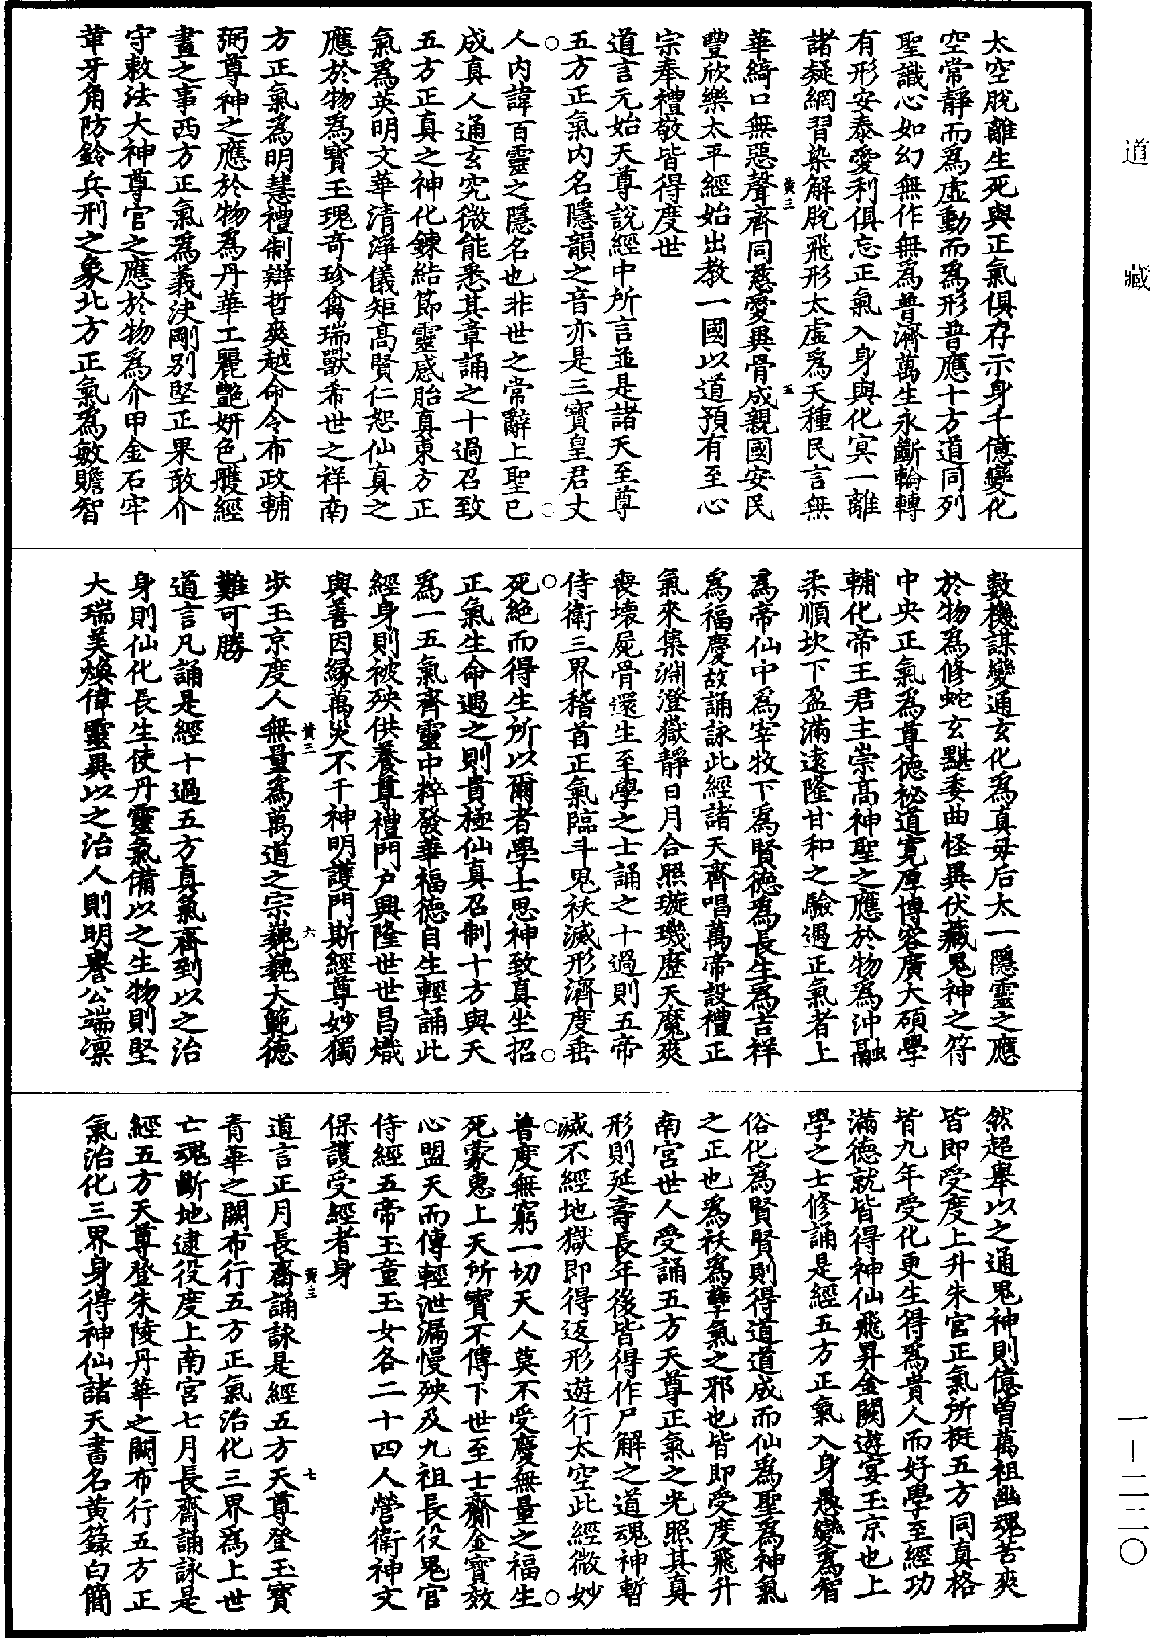 道藏
太空脫離生死與正氣俱存示身千億變化
空常靜而為虛動而為形普應十方道同列
聖識心如幻無作無為普濟萬生永斷輪轉
有形安泰愛利俱忘正氣入身與化冥一離
諸疑網習染解脫飛形太虛為天種民言無
黃三 五
華綺口無惡聲齊同慈愛異骨成親國安民
豐欣樂太平經始出教一國以道預有至心
宗奉禮敬皆得度世
道言元始天尊說經中所言並是諸天至尊
五方正氣內名隱韻之音亦是三寶皇君丈
人內諱百靈之隱名也非世之常辭上聖已
成真人通玄究微能悉其章誦之十過召致
五方正真之神化鍊結節靈感胎真東方正
氣為英明文華清淨儀矩高賢仁恕仙真之
應於物為寶玉瑰奇珍禽瑞獸希世之祥南
方正氣為明慧禮制辯哲爽越命令布政輔
弼尊神之應於物為丹華工麗艷妍色膄經
畫之事西方正氣為義決剛別堅正果敢介
守敕法大神尊官之應於物為介甲金石牢
革牙角防鈴兵刑之象北方正氣為敏贍智
數機謀變通玄化為真母后太一隱靈之應
於物為修蛇玄黮委曲怪異伏藏鬼神之符
中央正氣為尊德秘道寬厚博容廣大碩學
輔化帝王君主崇高神聖之應於物為沖融
柔順坎下盈滿遠隆甘和之驗遇正氣者上
為帝仙中為宰牧下為賢德為長生為吉祥
為福慶故誦詠此經諸天齊唱萬帝設禮正
氣來集淵澄嶽靜日月合照璇璣歷天魔爽
喪壞屍骨還生至學之士誦之十過則五帝
侍衛三界稽首正氣臨斗鬼袄滅形濟度垂
死絕而得生所以爾者學士思神致真坐招
正氣生命遇之則貴極仙真召制十方與天
為一五氣齊靈中粹發華福德自生輕誦此
經身則被殃供養尊禮門戶興隆世世昌熾
與善因緣萬災不干神明護門斯經尊妙獨
黃三 六
步玉京度人無量為萬道之宗巍巍大範德
難可勝
道言凡誦是經十過五方真氣齊到以之治
身則仙化長生使丹靈氣備以之生物則堅
大瑞美煥偉靈異以之治人則明譽公端凜
然超舉以之通鬼神則億曾萬祖幽魂苦爽
皆即受度上升朱宮正氣所挺五方同真格
皆九年受化更生得為貴人而好學至經功
滿德就皆得神仙飛昇金闕遊宴玉京也上
學之士修誦是經五方正氣入身愚變為智
俗化為賢賢則得道道成而仙為聖為神氣
之正也為袄為孽氣之邪也皆即受度飛升
南宮世人受誦五方天尊正氣之光照其真
形則延壽長年後皆得作尸解之道魂神暫
滅不經地獄即得返形遊行太空此經微妙
普度無窮一切天人莫不受慶無量之福生
死蒙惠上天所寶不傳下世至士齎金寶效
心盟天而傳輕泄漏慢殃及九祖長役鬼官
侍經五帝玉童玉女各二十四人營衛神文
保護受經者身
黃三 七
道言正月長齋誦詠是經五方天尊登玉寶
青華之闕布行五方正氣治化三界為上世
亡魂斷地逮役度上南宮七月長齋誦詠是
經五方天尊登朱陵丹華之闕布行五方正
氣治化三界身得神仙諸天書名黃籙白簡
一—二二〇